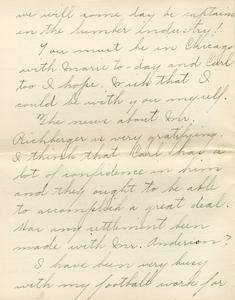 we will some day be captains
in the lumber industry!
You must be in Chicago
with Marie to-day and Carl
too I hope. Wish that I
could be with you myself.
The news about Mr.
Richberger is very gratifying.
I think that Carl has a
lot of confidence in him
and they ought to be able
to accomplish a great deal.
Has any settlement been
made with Mr. Anderson?
I have been very busy
with my football work for